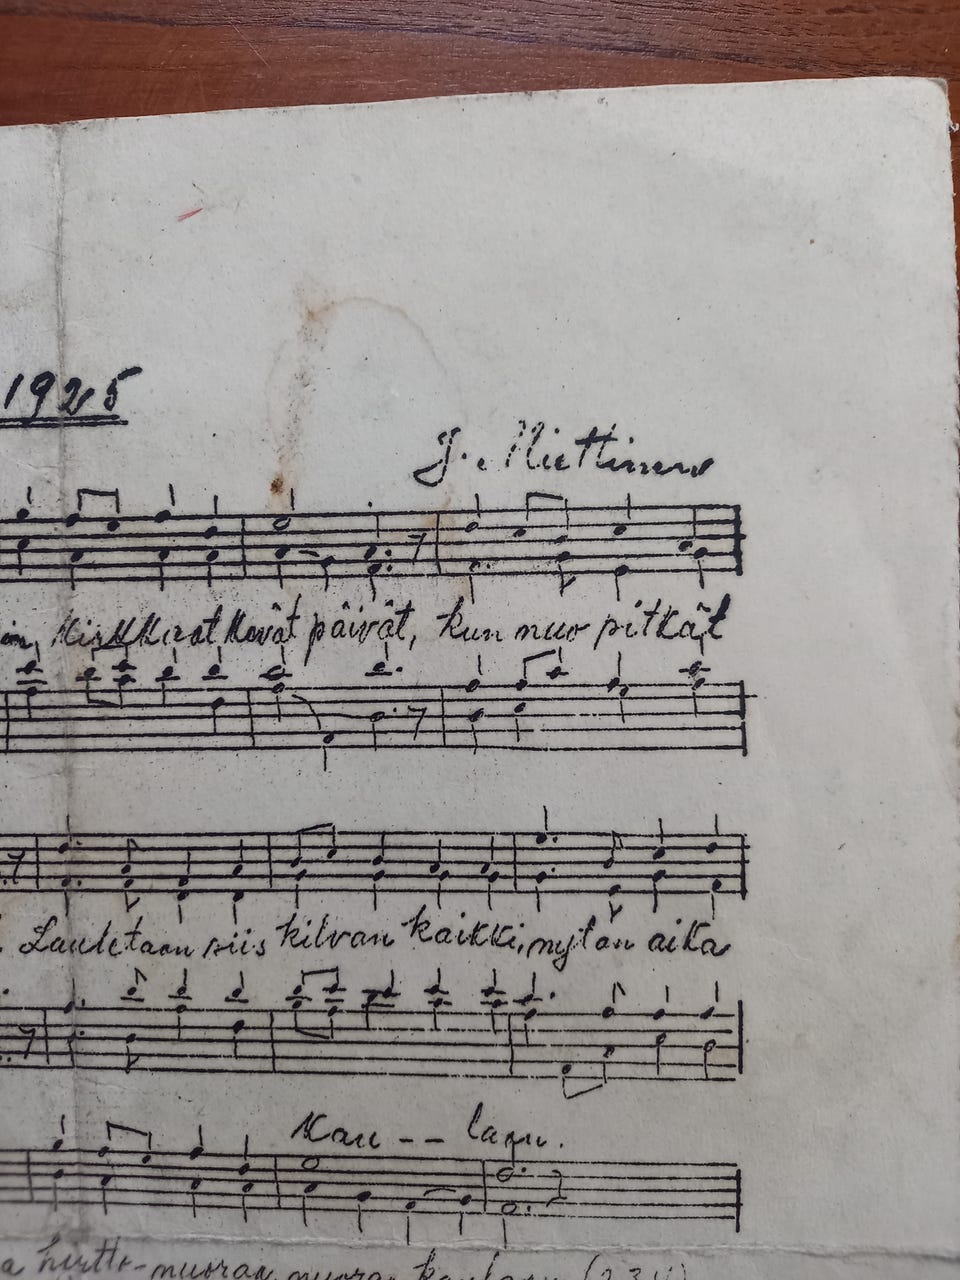 1925
J. Miettinen
päivät, kun nuo pitkät
Lauletaan siis kilvan kaikki, nyt on aika
Kau -- laan.
a hirtto-nuoran, nuoran kaulaan (2 3 4)